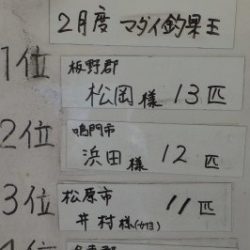 2月度 マダイ釣果王
1位
板野郡
松岡様 13匹
2位
鳴門市
浜田様 12匹
3位
松原市
井村様(女性) 11匹